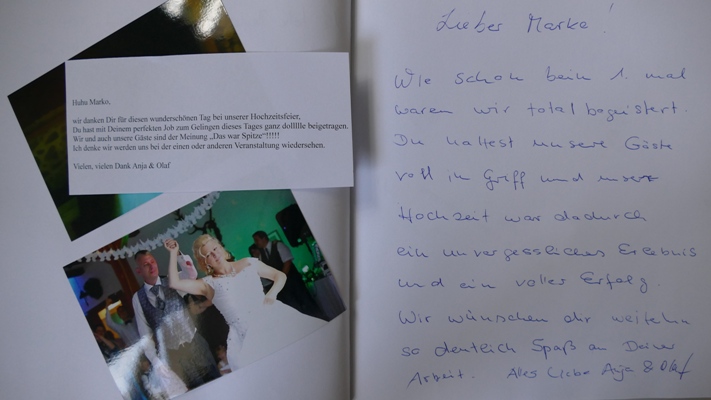 Huhu Marko,
wir danken Dir für diesen wunderschönen Tag bei unserer Hochzeitsfeier,
Du hast mit Deinem perfekten Job zum Gelingen dieses Tages ganz dolllle beigetragen.
Wir und auch unsere Gäste sind der Meinung „Das war Spitze“!!!!!
Ich denke wir werden uns bei der einen oder anderen Veranstaltung wiedersehen.
Vielen, vielen Dank Anja & Olaf
Lieber Marko!
Wie schon beim 1. mal
waren wir total begeistert.
Du hattest unsere Gäste
voll im Griff und unsere
Hochzeit war dadurch
ein unvergessliches Erlebnis
und ein voller Erfolg.
Wir wünschen dir weiterhin
so dentlich Spaß an Deiner
Arbeit. Alles Liebe Anja & Olaf